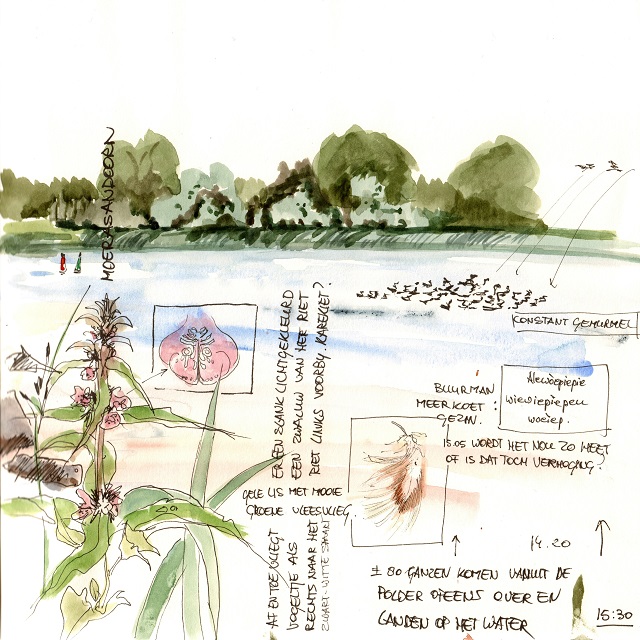 MOERASANDOORN
CONSTANT GEMURMEL
BUURMAN
MEERKOET :
GEZIN.
wiewiepiepieu
woeiep.
15.05 WORDT HET NOU ZO HEET
OF IS DAT TOCH VERHOGING?
ER EEN SLANK LICHTGEKLEURD
EEN ZWALUW VAN HET RIET
RIET LINKS VOORBY. KAREKIET?
GELE LIS MET MOOIE
GROENE VLEESVLIEG.
AF EN TOE VLIEGT
VOGELTJE ALS
RECHTS NAAR HET
ZWART-WITTE STAART
14.20
± 80 GANZEN KOMEN VANUIT DE
POLDER OPEENS OVER EN
LANDEN OP HET WATER
15:30